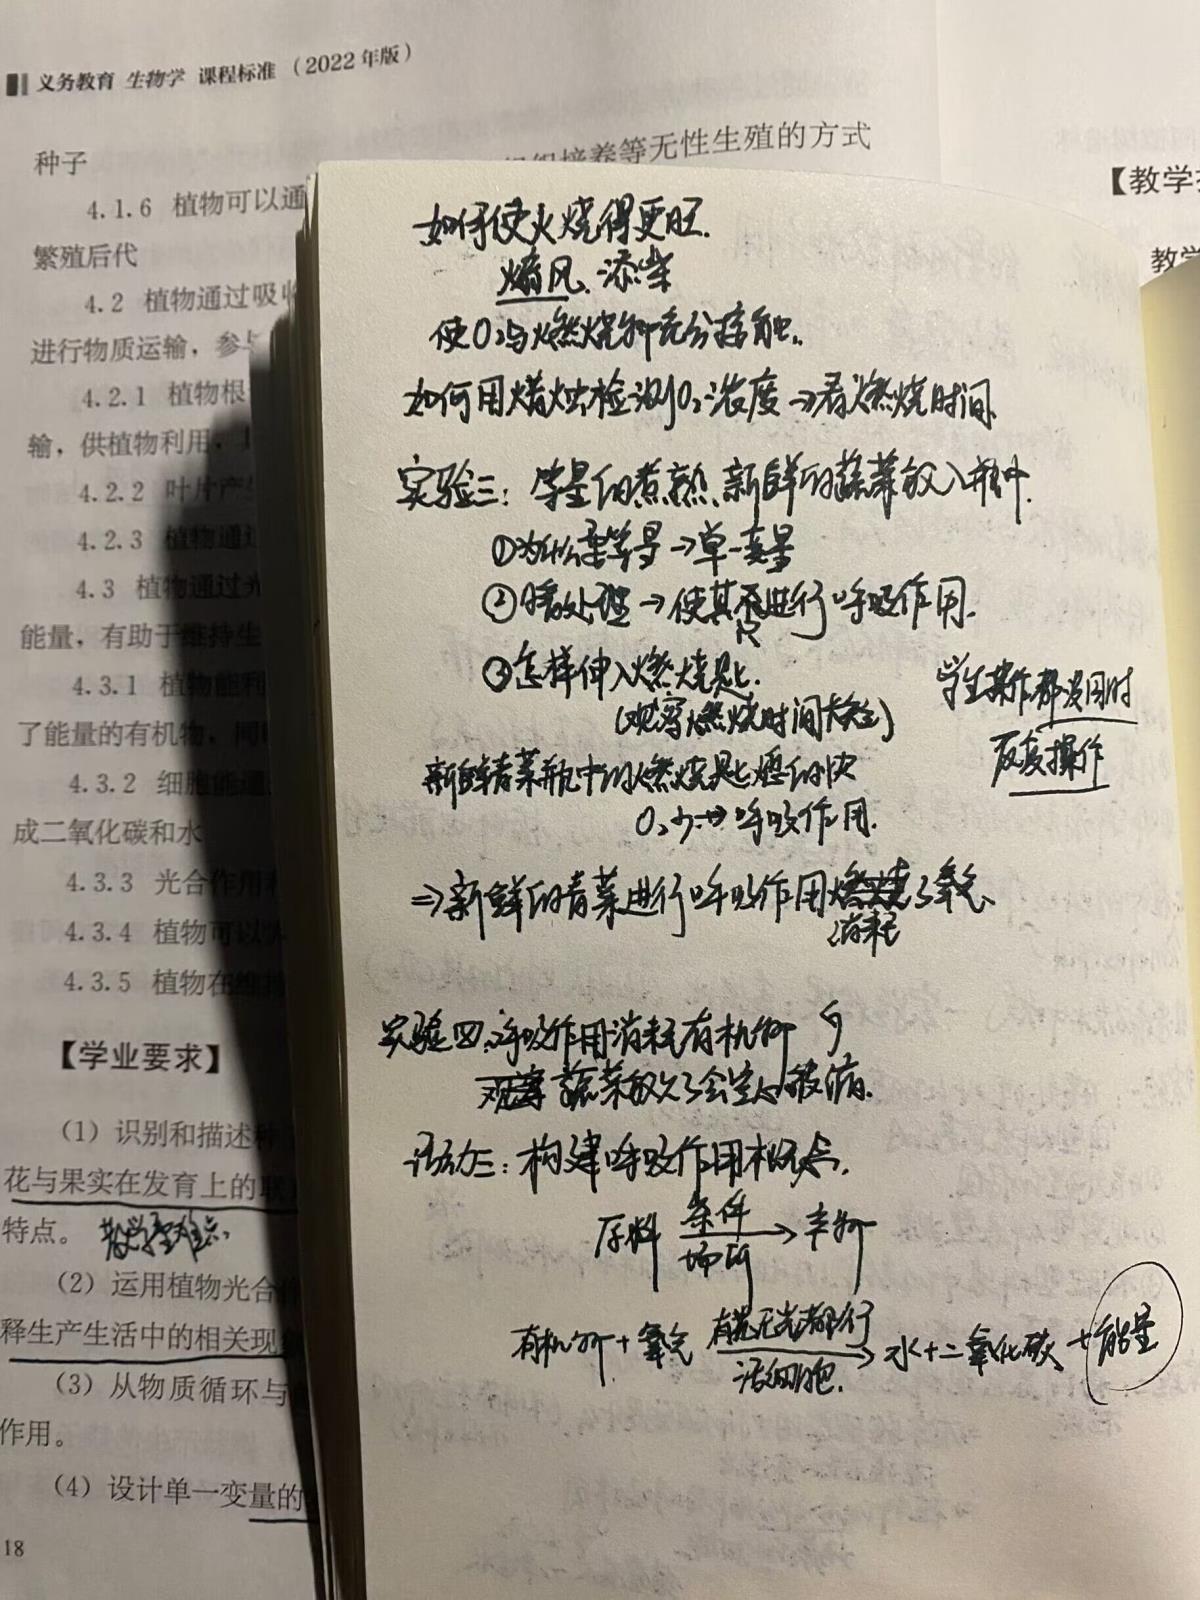 义务教育 生物学 课程标准（2022年版）
种子
组织培养等无性生殖的方式
4.1.6 植物可以通
繁殖后代
4.2 植物通过吸收
进行物质运输，参与
4.2.1 植物根
输，供植物利用，
4.2.2 叶片产生
4.2.3 植物通过
4.3 植物通过光
能量，有助于维持生
4.3.1 植物能利
了能量的有机物，同时
4.3.2 细胞能通
成二氧化碳和水
4.3.3 光合作用
4.3.4 植物可以
4.3.5 植物在维持
【学业要求】
（1）识别和描述种
花与果实在发育上的联
特点。 教学重难点.
（2）运用植物光合作
释生产生活中的相关现象
（3）从物质循环与
作用。
（4）设计单一变量的
18
如何使火烧得更旺.
煽风、添柴
使O₂与燃烧物充分接触.
如何用蜡烛检测O₂浓度→看燃烧时间.
实验三：等量的煮熟、新鲜的蔬菜放入瓶中.
①为什么要等量→单一变量
②暗处理→使其只进行呼吸作用.
③怎样伸入燃烧匙.
(观察燃烧时间长短)
新鲜青菜瓶中的燃烧匙熄的快
O₂少→呼吸作用.
⇒新鲜的青菜进行呼吸作用燃烧了氧气.
消耗
学生操作都没用时
反复操作
实验四：呼吸作用消耗有机物
观察 蔬菜放久了会
活动三：构建呼吸作用概念.
原料 条件 → 产物
场所
有机物+氧气 有光无光都行 → 水+二氧化碳+能量
活细胞.
【教学
教学